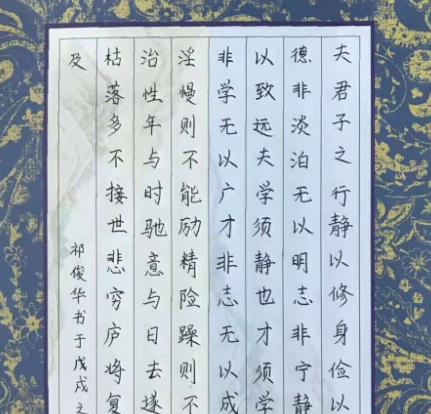 夫君子之行静以修身俭以
德非淡泊无以明志非宁静
以致远夫学须静也才须学
非学无以广才非志无以成
淫慢则不能励精险躁则不
治性年与时驰意与日去遂
枯落多不接世悲穷庐将复
及
祁俊华书于戊戌之